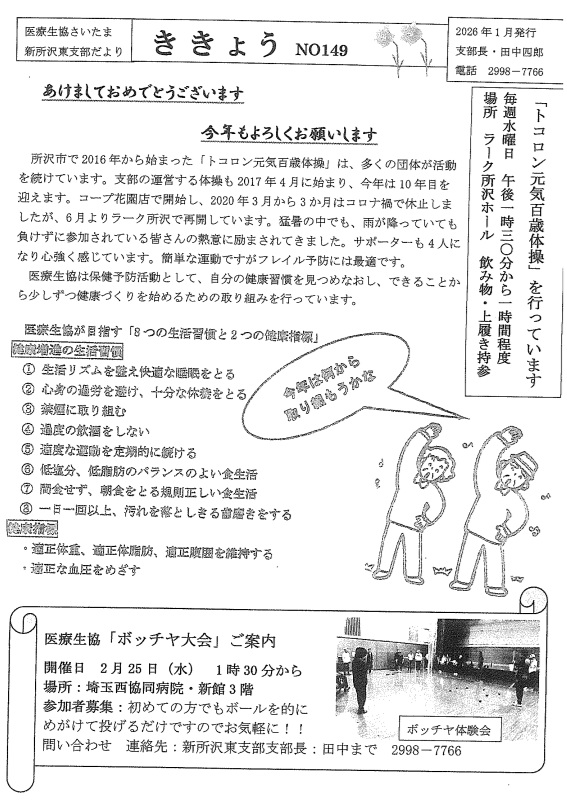 医療生協さいたま
新所沢東支部だより
ききょう NO149
2026年1月発行
支部長・田中四郎
電話 2998-7766
あけましておめでとうございます
今年もよろしくお願いします
「トコロン元気百歳体操」を行っています
毎週水曜日 午後一時三〇分から一時間程度
場所 ラーク所沢ホール 飲み物・上履き持参
所沢市で2016年から始まった「トコロン元気百歳体操」は、多くの団体が活動
を続けています。支部の運営する体操も2017年4月に始まり、今年は10年目を
迎えます。コープ花園店で開始し、2020年3月から3か月はコロナ禍で休止しま
したが、6月よりラーク所沢で再開しています。猛暑の中でも、雨が降っていても
負けずに参加されている皆さんの熱意に励まされてきました。サポーターも4人に
なり心強く感じています。簡単な運動ですがフレイル予防には最適です。
医療生協は保健予防活動として、自分の健康習慣を見つめなおし、できることか
ら少しずつ健康づくりを始めるための取り組みを行っています。
医療生協が目指す「8つの生活習慣と2つの健康指標」
健康増進の生活習慣
① 生活リズムを整え快適な睡眠をとる
② 心身の過労を避け、十分な休養をとる
③ 禁煙に取り組む
④ 過度の飲酒をしない
⑤ 適度な運動を定期的に続ける
⑥ 低塩分、低脂肪のバランスのよい食生活
⑦ 間食せず、朝食をとる規則正しい食生活
⑧ 一日一回以上、汚れを落としきる歯磨きをする
健康指標
・適正体重、適正体脂肪、適正腹囲を維持する
・適正な血圧をめざす
今年は何から
取り組もうかな
医療生協「ボッチャ大会」ご案内
開催日 2月25日(水) 1時30分から
場所:埼玉西協同病院・新館3階
参加者募集:初めての方でもボールを的に
めがけて投げるだけですのでお気軽に!!
問い合わせ 連絡先:新所沢東支部支部長:田中まで 2998-7766
ボッチャ体験会